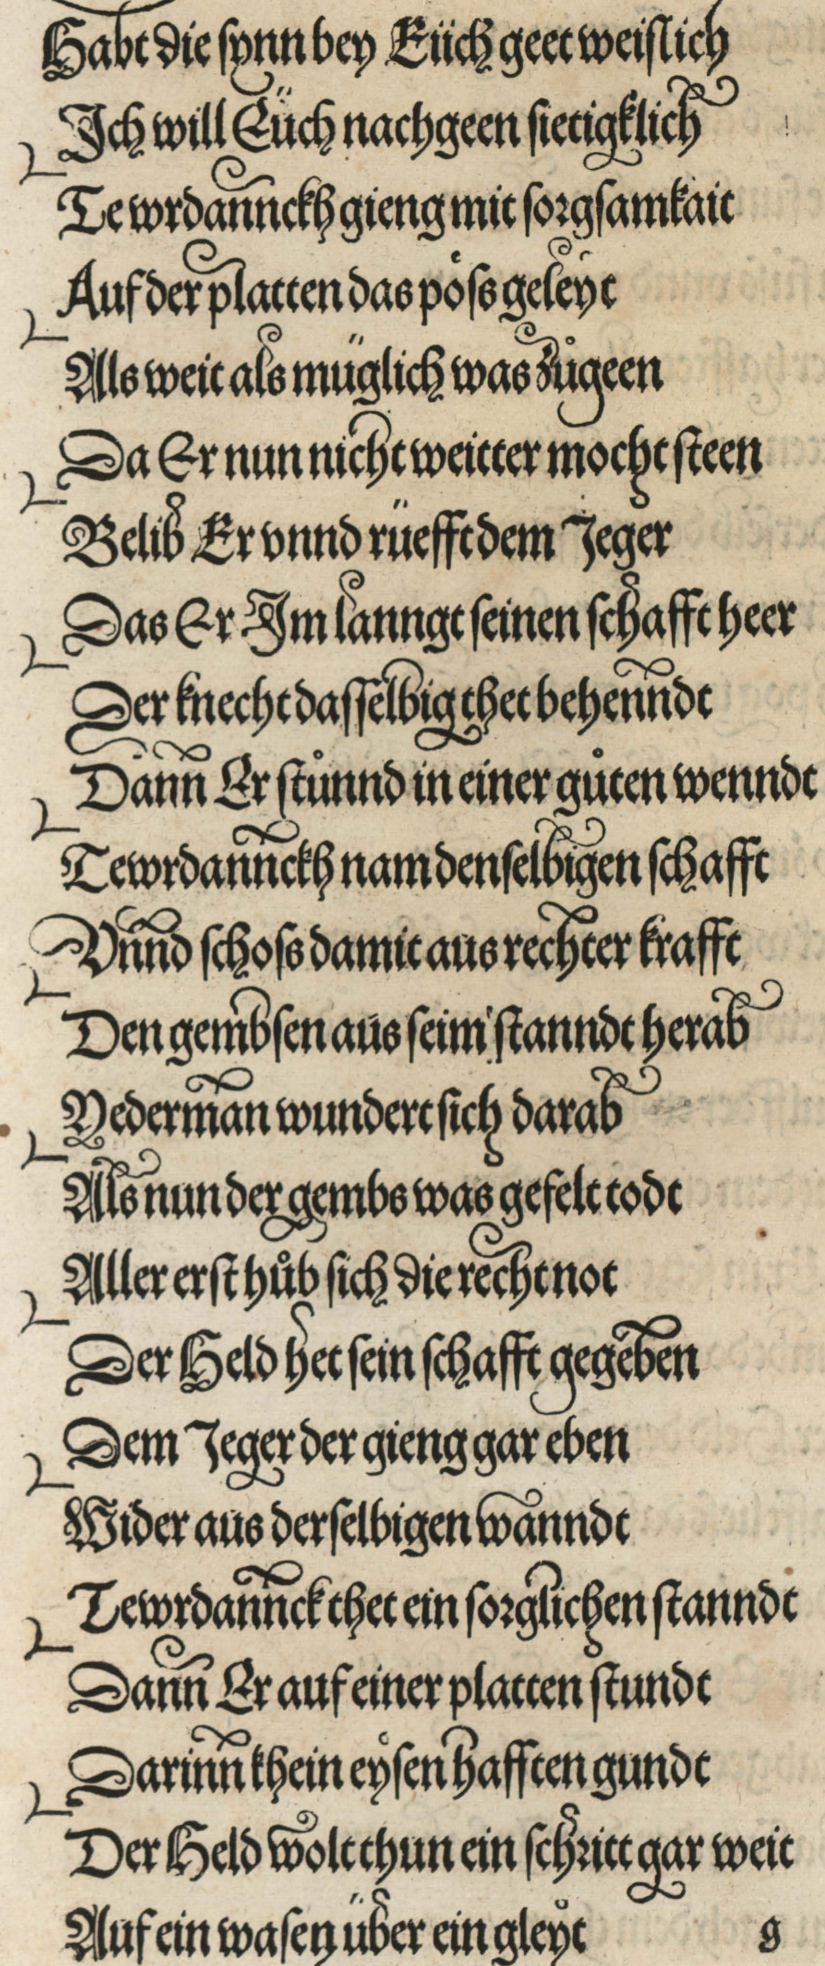 Habt die synn bey Eüch geet weislich
Ich will Eüch nachgeen sietigklich
Tewrdannckh gieng mit sorgsamkait
Auf der platten das pöss geleyt
Als weit als müglich was zůgeen
Da Er nun nicht weitter mocht steen
Belib Er vnnd rüefft dem Jeger
Das Er Im lanngt seinen schafft heer
Der knecht dasselbig thet behenndt
Dann Er stůnnd in einer gůten wenndt
Tewrdannckh nam denselbigen schafft
Vnnd schoss damit aus rechter krafft
Den gembsen aus seim stanndt herab
Yederman wundert sich darab
Als nun der gembs was gefelt todt
Aller erst hůb sich die recht not
Der Held het sein schafft gegeben
Dem Jeger der gieng gar eben
Wider aus derselbigen wanndt
Tewrdannck thet ein sorglichen stanndt
Dann Er auf einer platten stundt
Darinn khein eysen hafften gundt
Der Held wolt thun ein schritt gar weit
Auf ein wasen über ein gleyt
g